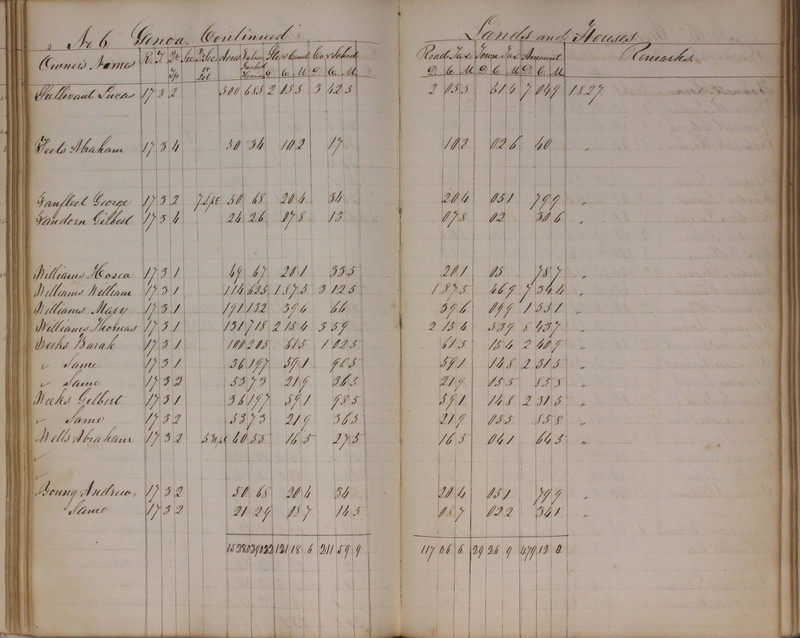 No 6 Genoa, Continued Lands and Houses
Owners Names R. T. Acres Value State & Canal Co & School Road Tax Town Tax Amount Remarks
Includg
Houses
D C M D C M D C M D C M D C M
Sullivant Lucas 17 3 2 500 685 2 055 3 425 2 055 514 7 049 1827
Tools Abraham 17 3 4 50 34 102 17 102 026 40 "
Vanfleet George 17 3 2 50 68 204 34 204 051 799 "
Vandorn Gilbert 17 3 4 24 26 078 13 078 02 306 "
Williams Hosea 17 3 1 49 67 201 335 201 05 787 "
Williams William 17 3 1 114 625 1 875 3 125 1 875 469 7 344 "
Williams Mary 17 3 1 191 132 396 66 396 099 1 551 "
Williams Thomas 17 3 1 131 718 2 154 3 59 2 154 539 8 437 "
Weeks Barak 17 3 1 100 205 615 1 025 615 154 2 409 "
" Same 17 3 1 36 197 591 985 591 148 2 315 "
" Same 17 3 2 53 73 219 365 219 055 858 "
Weeks Gilbert 17 3 1 36 197 591 985 591 148 2 315 "
" Same 17 3 2 53 73 219 365 219 055 858 "
Wells Abraham 17 3 2 40 55 165 275 165 041 645 "
Young Andrew 17 3 2 50 68 204 34 204 051 799 "
" Same 17 3 2 21 29 087 145 087 022 341 "
121 18 6 211 59 9 117 06 6 29 26 9 479 12 0